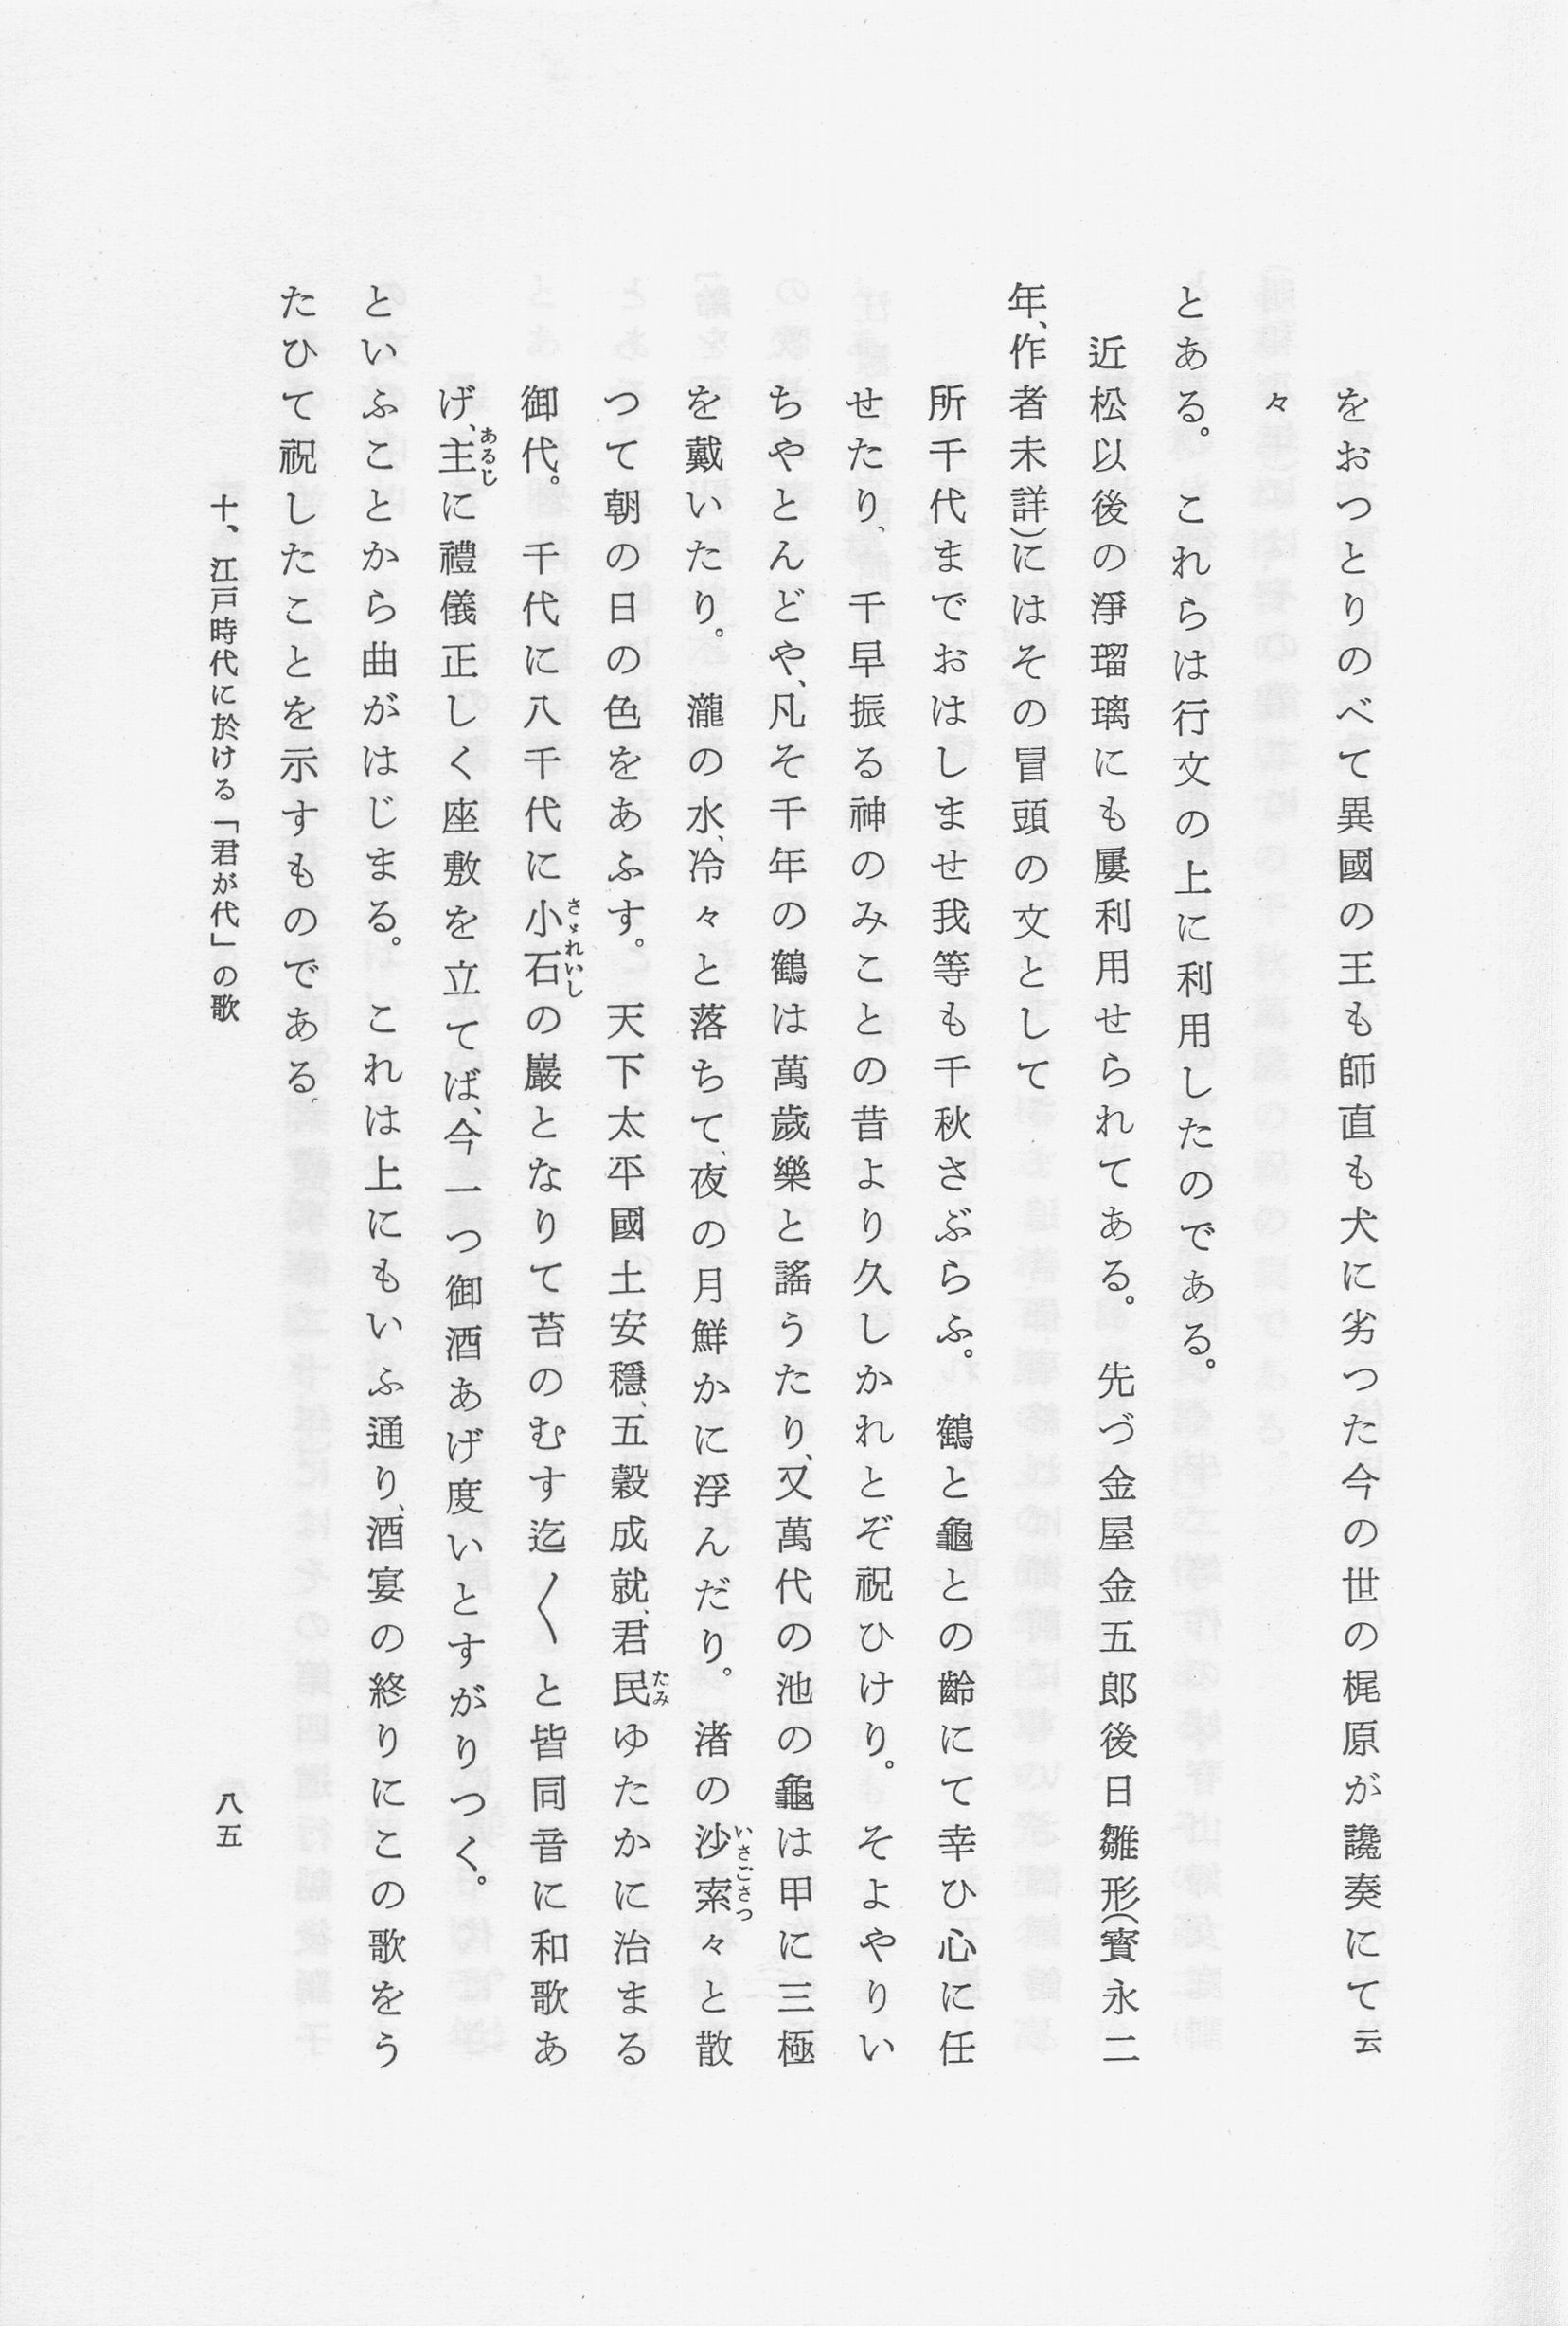 をおつとりのべて異國の王も師直も犬に劣つた今の世の梶原が讒奏にて云
々
とある。これらは行文の上に利用したのである。
近松以後の淨瑠璃にも屢利用せられてある。先づ金屋金五郎後日雛形(寳永二
年、作者未詳)にはその冒頭の文として
所千代までおはしませ我等も千秋さぶらふ。鶴と龜との齡にて幸ひ心に任
せたり、千早振る神のみことの昔より久しかれとぞ祝ひけり。そよやりい
ちやとんどや、凡そ千年の鶴は萬歲樂と謠うたり、又萬代の池の龜は甲に三極
を戴いたり。瀧の水、冷々と落ちて、夜の月鮮かに浮んだり。渚の沙索々と散
つて朝の日の色をあふす。天下太平國土安穩、五穀成就、君民ゆたかに治まる
御代。千代に八千代に小石の巖となりて苔のむす迄〱と皆同音に和歌あ
げ、主に禮儀正しく座敷を立てば、今一つ御酒あげ度いとすがりつく。
といふことから曲がはじまる。これは上にもいふ通り、酒宴の終りにこの歌をう
たひて祝したことを示すものである。
十、江戸時代に於ける「君が代」の歌
八五